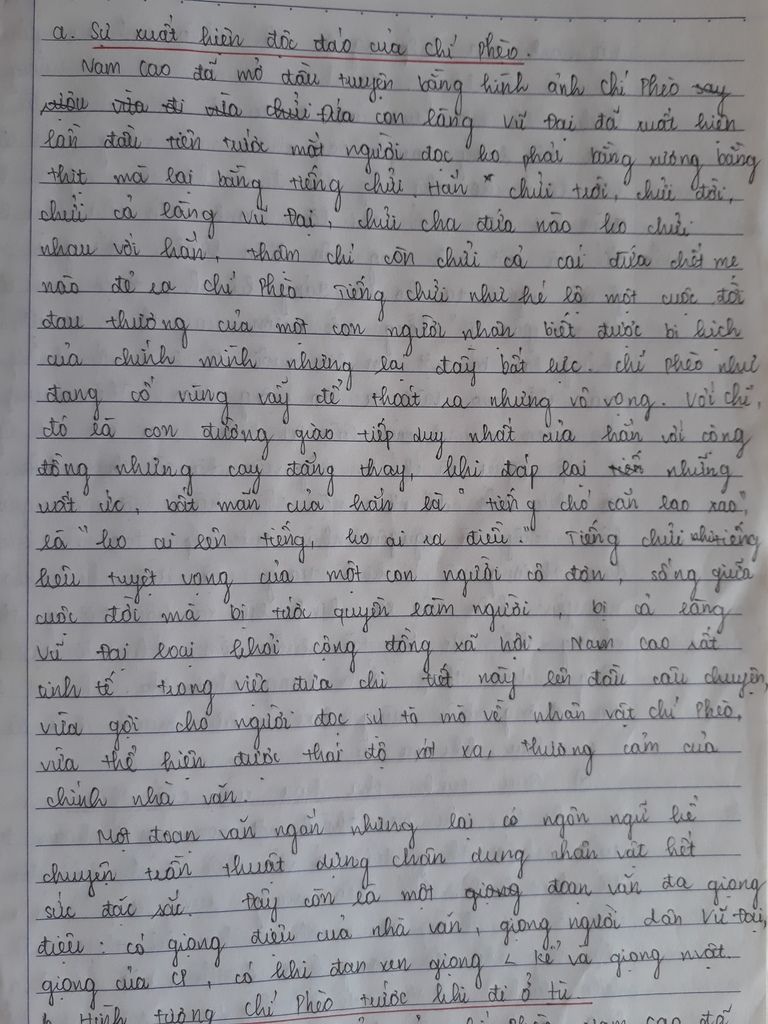 a. Sự xuất hiện độc đáo của Chí Phèo.
Nam Cao đã mở đầu truyện bằng hình ảnh Chí Phèo say
rượu vừa đi vừa chửi. Đứa con làng Vũ Đại đã xuất hiện
lần đầu tiên trước mắt người đọc ko phải bằng xương bằng
thịt mà lại bằng tiếng chửi. Hắn chửi trời, chửi đời,
chửi cả làng Vũ Đại, chửi cha đứa nào ko chửi
nhau với hắn, thậm chí còn chửi cả cái đứa chết mẹ
nào đẻ ra Chí Phèo. Tiếng chửi như hé lộ một cuộc đời
đau thương của một con người nhận biết được bi kịch
của chính mình nhưng lại đầy bất lực. Chí Phèo như
đang cố vùng vẫy để thoát ra nhưng vô vọng. Với Chí,
đó là con đường giao tiếp duy nhất của hắn với cộng
đồng nhưng cay đắng thay, khi đáp lại tiến những
uất ức, bất mãn của hắn là "tiếng chó cắn lao xao",
là "ko ai lên tiếng, ko ai ra điều." Tiếng chửi như tiếng
kêu tuyệt vọng của một con người cô đơn, sống giữa
cuộc đời mà bị tước quyền làm người, bị cả làng
Vũ Đại loại khỏi cộng đồng xã hội. Nam Cao rất
tinh tế trong việc đưa chi tiết này lên đầu câu chuyện,
vừa gợi cho người đọc sự tò mò về nhân vật Chí Phèo,
vừa thể hiện được thái độ xót xa, thương cảm của
chính nhà văn.
Một đoạn văn ngắn nhưng lại có ngôn ngữ kể
chuyện trần thuật dựng chân dung nhân vật hết
sức đặc sắc. Đây còn là một giọng đoạn văn đa giọng
điệu: có giọng điệu của nhà văn, giọng người dân Vũ Đại,
giọng của CP, có khi đan xen giọng kể và giọng
Hình tượng Chí Phèo trước khi đi ở tù.